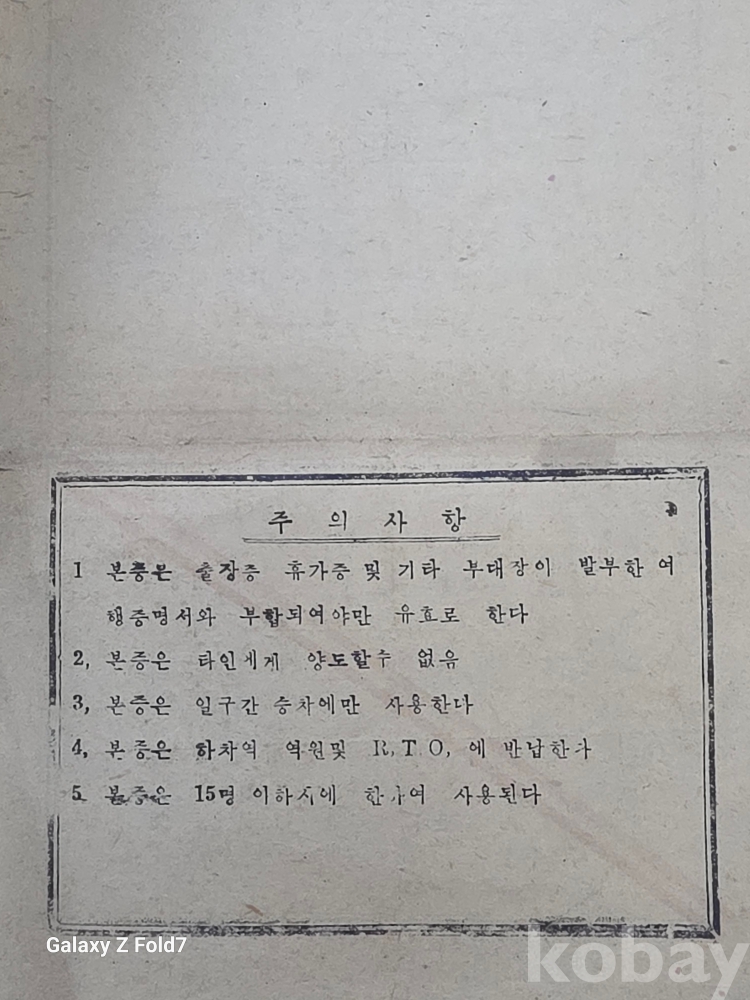 주 의 사 항
1 본증은 출장증 휴가증 및 기타 부대장이 발부한 여
행증명서와 부합되여야만 유효로 한다
2, 본증은 타인에게 양도할수 없음
3, 본증은 일구간 승차에만 사용한다
4, 본증은 하차역 역원및 R,T,O, 에 반납한다
5 본증은 15명 이하시에 한하여 사용된다
Galaxy Z Fold7
kobay